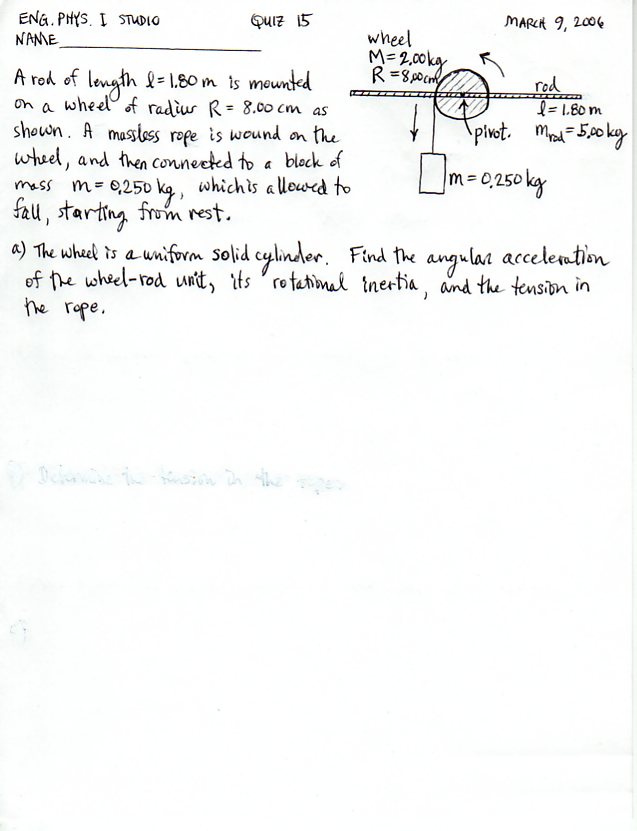 ENG. PHYS. I STUDIO QUIZ 15 MARCH 9, 2006
NAME
wheel
M = 2.00 kg
R = 8.00 cm
rod
l = 1.80 m
mrod = 5.00 kg
pivot.
m = 0.250 kg
A rod of length l = 1.80 m is mounted
on a wheel of radius R = 8.00 cm as
shown. A massless rope is wound on the
wheel, and then connected to a block of
mass m = 0.250 kg, which is allowed to
fall, starting from rest.
a) The wheel is a uniform solid cylinder. Find the angular acceleration
of the wheel-rod unit, its rotational inertia, and the tension in
the rope.
Determine the tension in the rope.